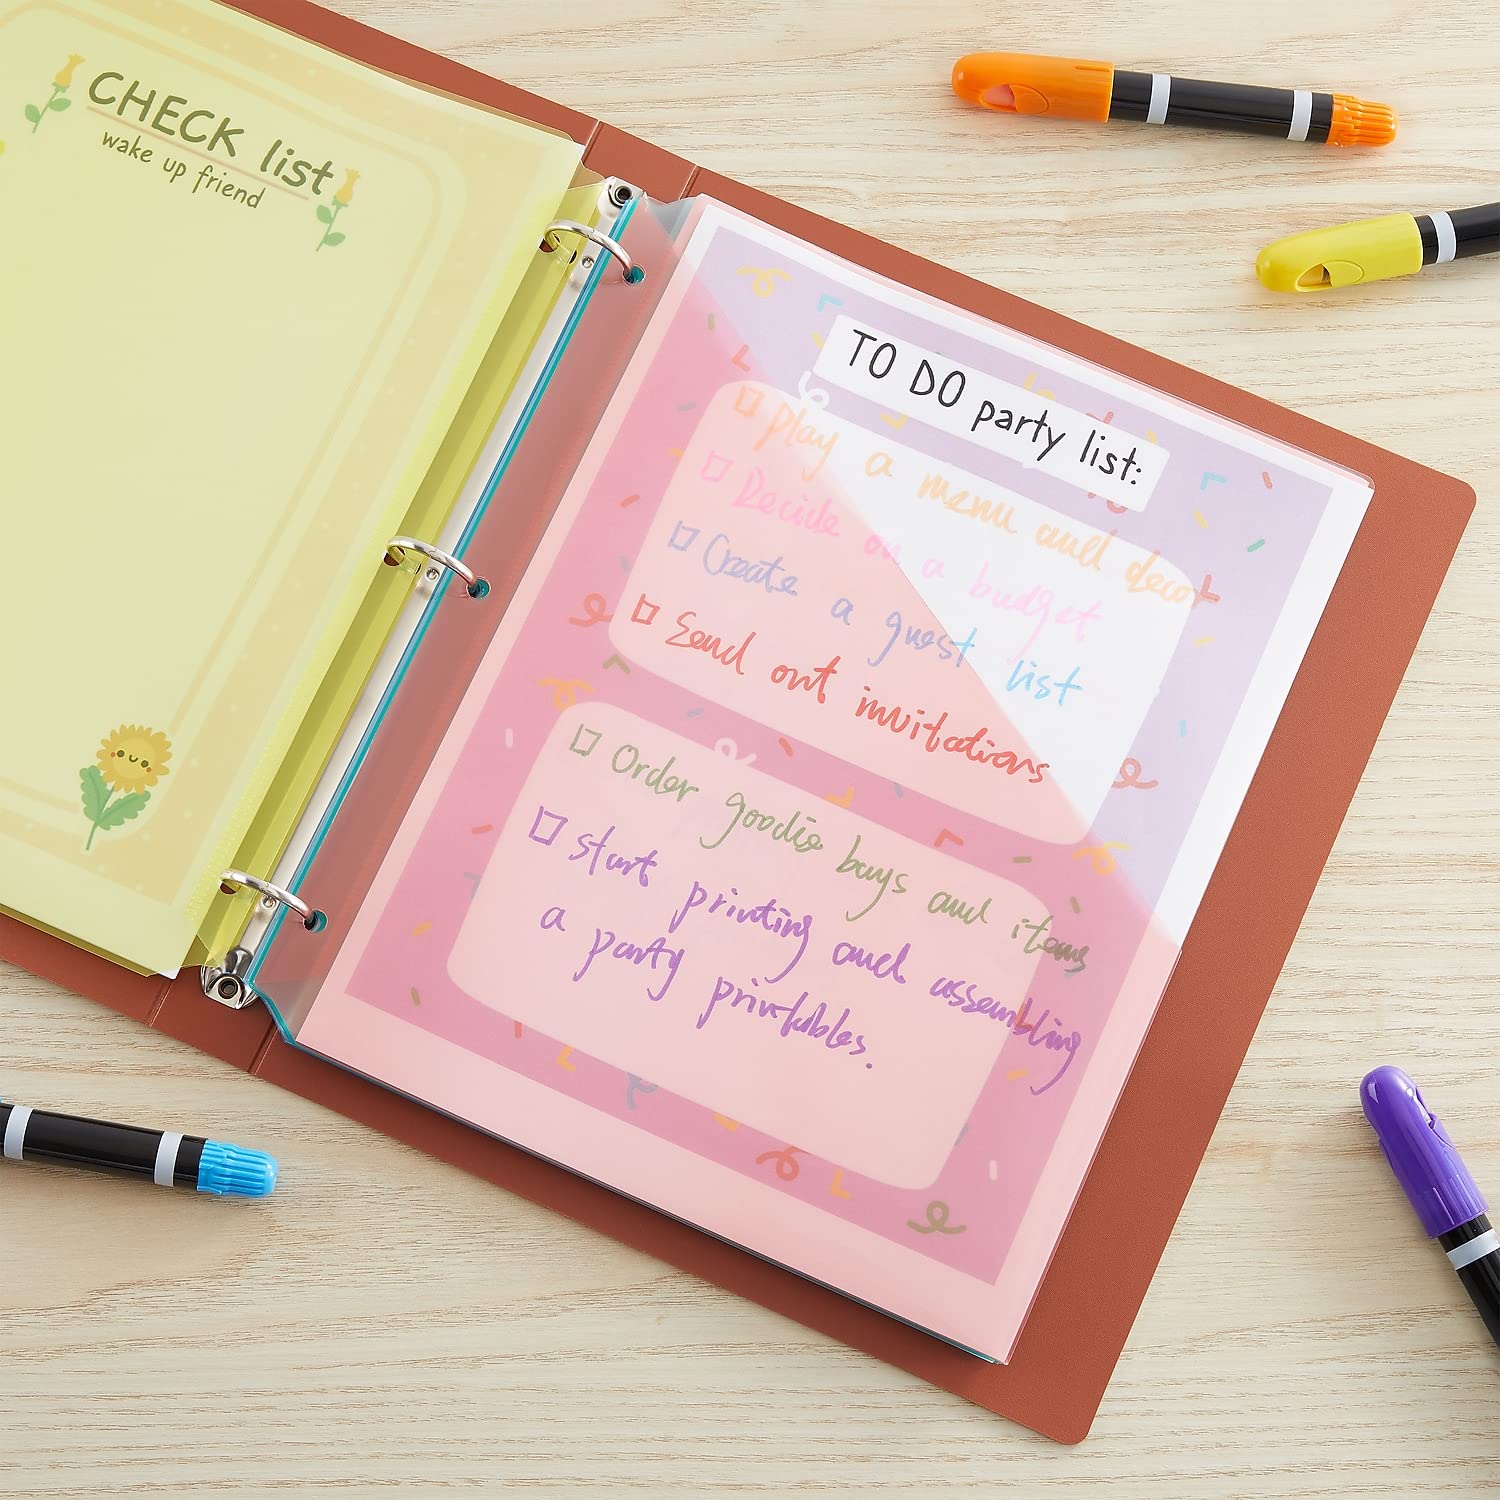 CHECK list
wake up friend
TO DO party list:
□ play a menu and decor
□ Decide on a budget
□ Create a guest list
□ Send out invitations
□ Order goodie bags and items
□ start printing and assembling
a party printables.